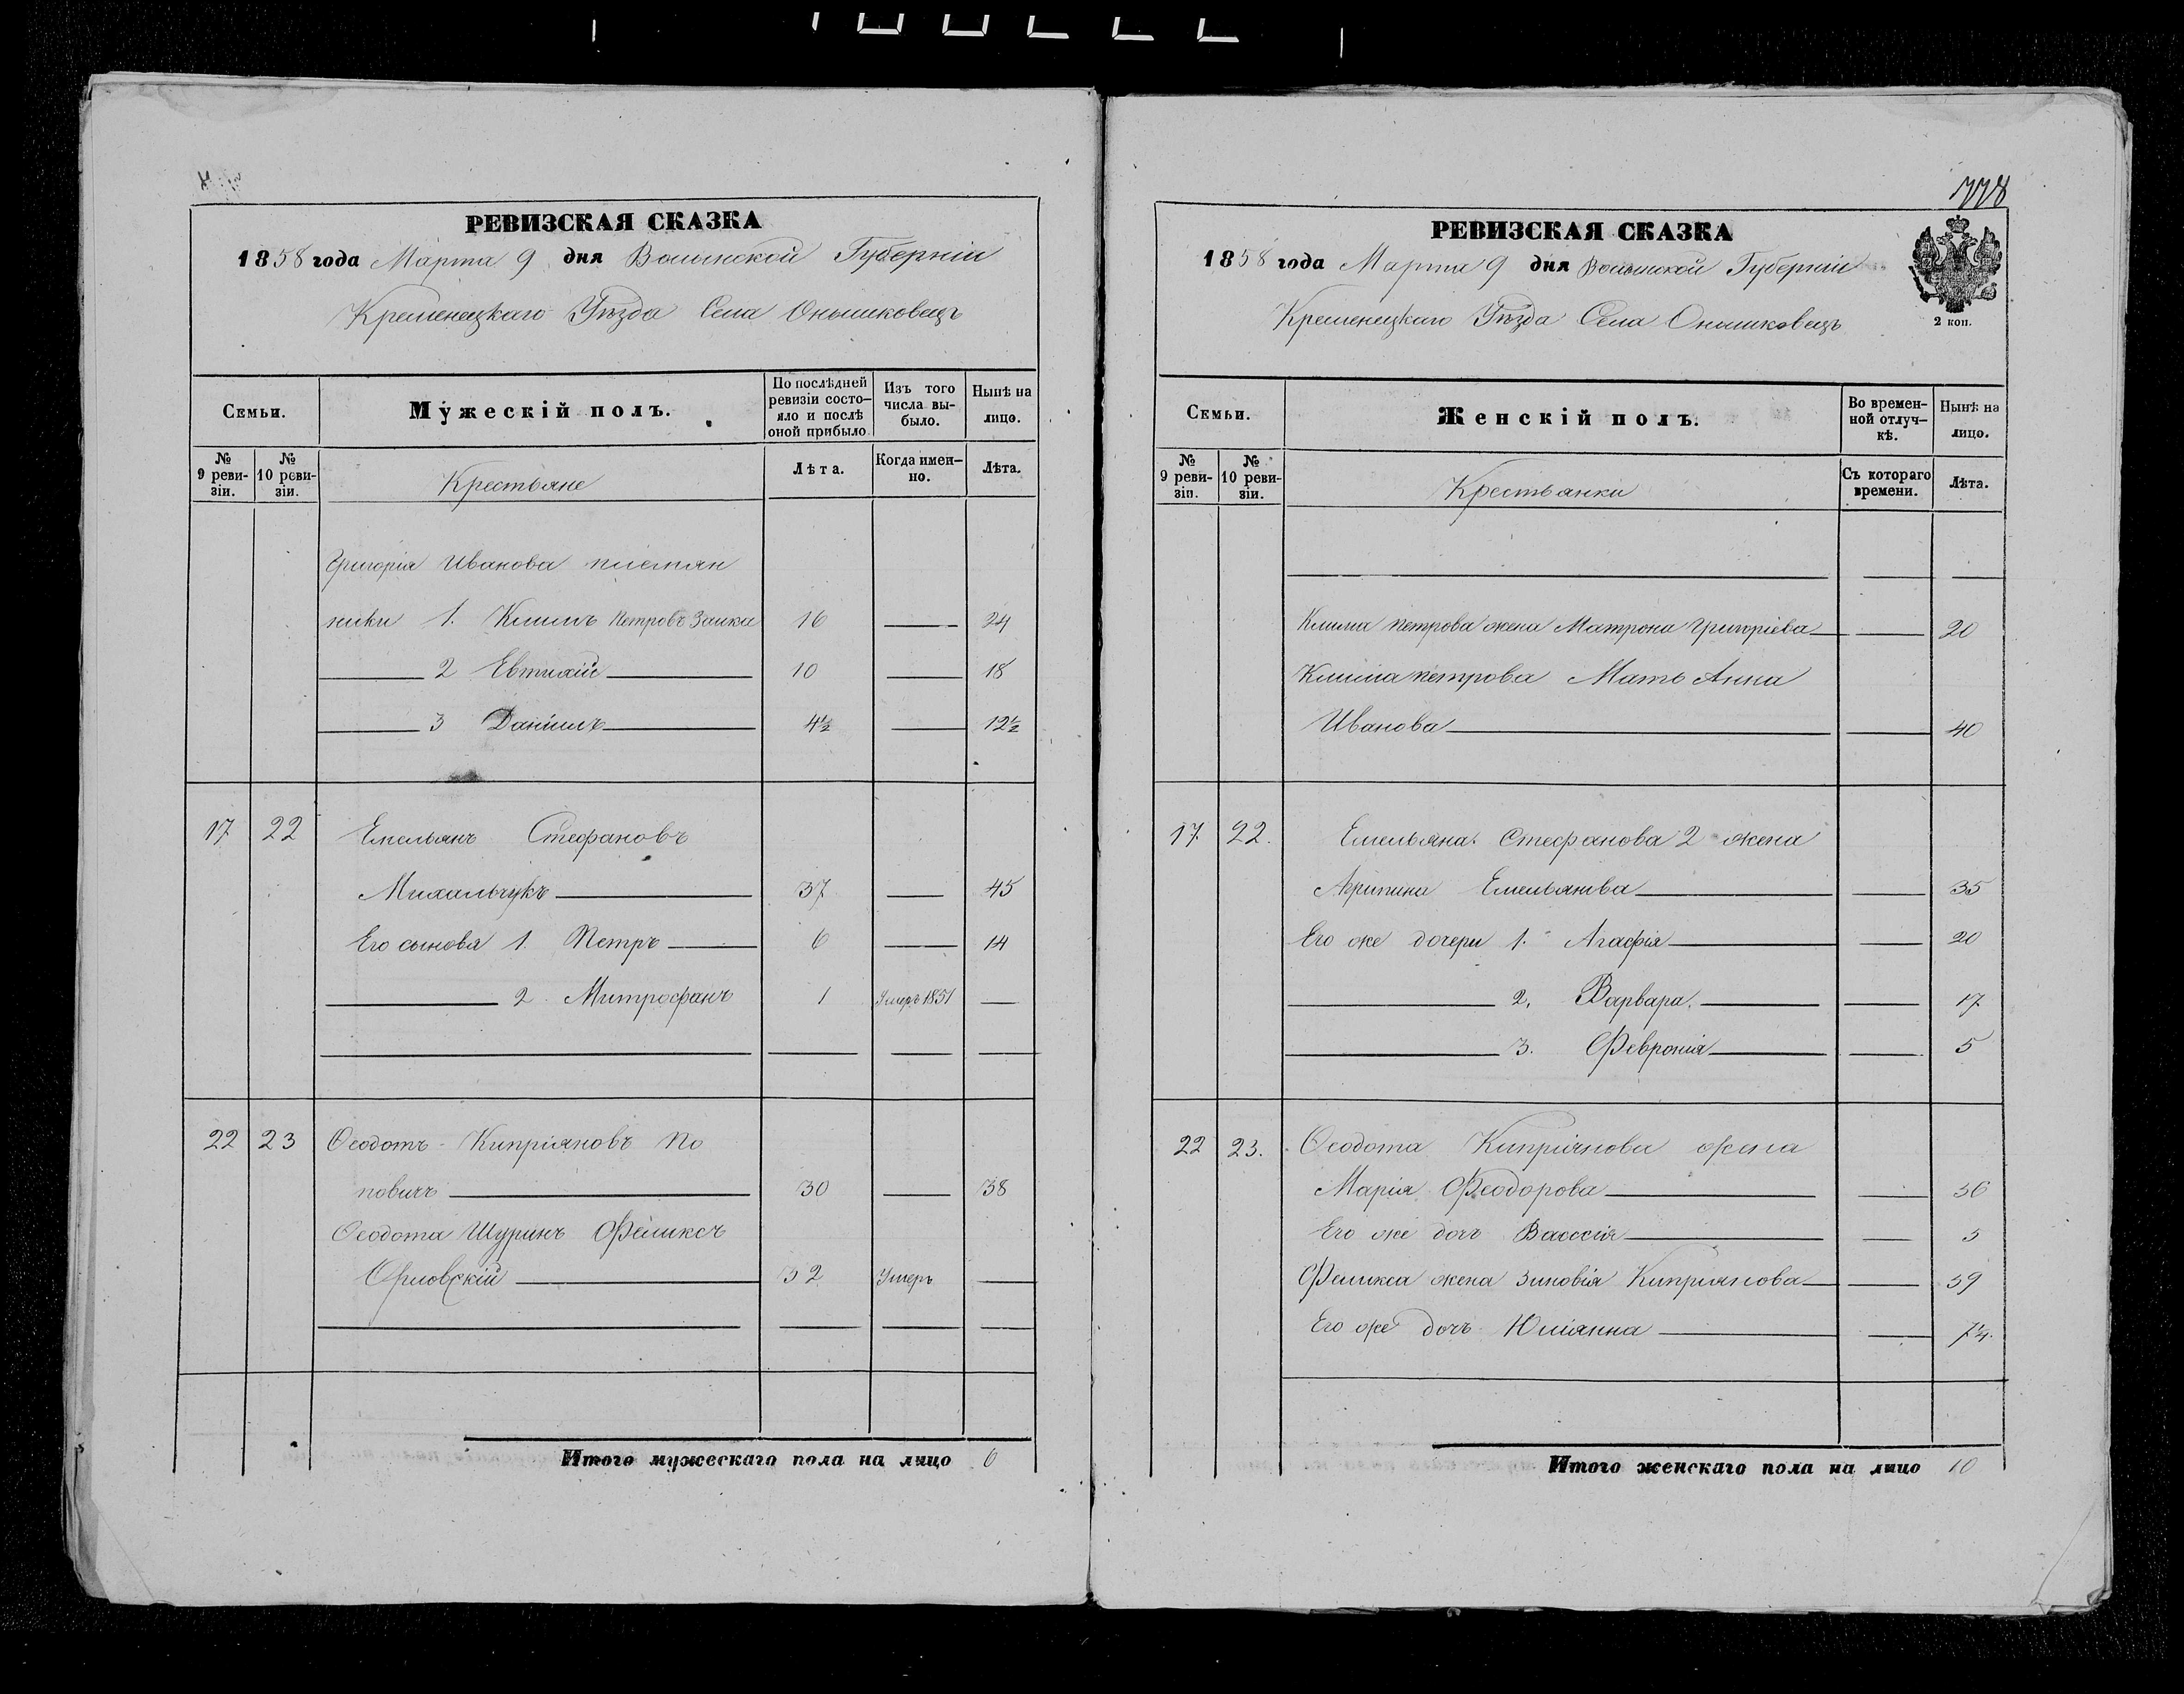 РЕВИЗСКАЯ СКАЗКА
1858 года Марта 9 дня Волынской Губерніи
Кременецкаго Уѣзда Села Онышковецъ
Семьи.
Мужескій полъ.
По послѣдней ревизіи состо-
яло и послѣ оной прибыло
Изъ того числа вы-
было.
Нынѣ на лицо.
№ 9 реви-
зіи.
№ 10 реви-
зіи.
Крестьяне
Лѣта.
Когда имен-
но.
Лѣта.
Григорія Иванова племян
ники 1. Климъ Петровъ Заика 16 — 24
2 Евтихій 10 — 18
3 Даніилъ 4½ — 12½
17 22 Емельянъ Стефановъ
Михальчукъ 37 — 45
Его сыновя 1. Петръ 6 — 14
2. Митрофанъ 1 Умеръ 1851 —
22 23 Ѳеодотъ Кипріяновъ По
повичъ 30 — 38
Ѳеодота Шуринъ Феликсъ
Орловскій 32 Умеръ —
Итого мужескаго пола на лицо 6
778
РЕВИЗСКАЯ СКАЗКА
1858 года Марта 9 дня Волынской Губерніи
Кременецкаго Уѣзда Села Онышковецъ
2 коп.
Семьи.
Женскій полъ.
Во времен-
ной отлуч-
кѣ.
Нынѣ на лицо.
№ 9 реви-
зіи.
№ 10 реви-
зіи.
Крестьянки
Съ котораго времени.
Лѣта.
Клима Петрова жена Матрона Григоріева — 20
Клима Петрова Мать Анна
Иванова — 40
17. 22. Емельяна Стефанова 2 жена
Агрипина Емельянова — 35
Его же дочери 1. Агафія — 20
2, Варвара, — 17
3. Февронія — 5
22 23. Ѳеодота Кипріянова жена
Марія Феодорова — 36
Его же дочь Вассія — 5
Феликса жена Зиновія Кипріянова — 39
Его же дочь Юліянна — 7¼.
Итого женскаго пола на лицо 10